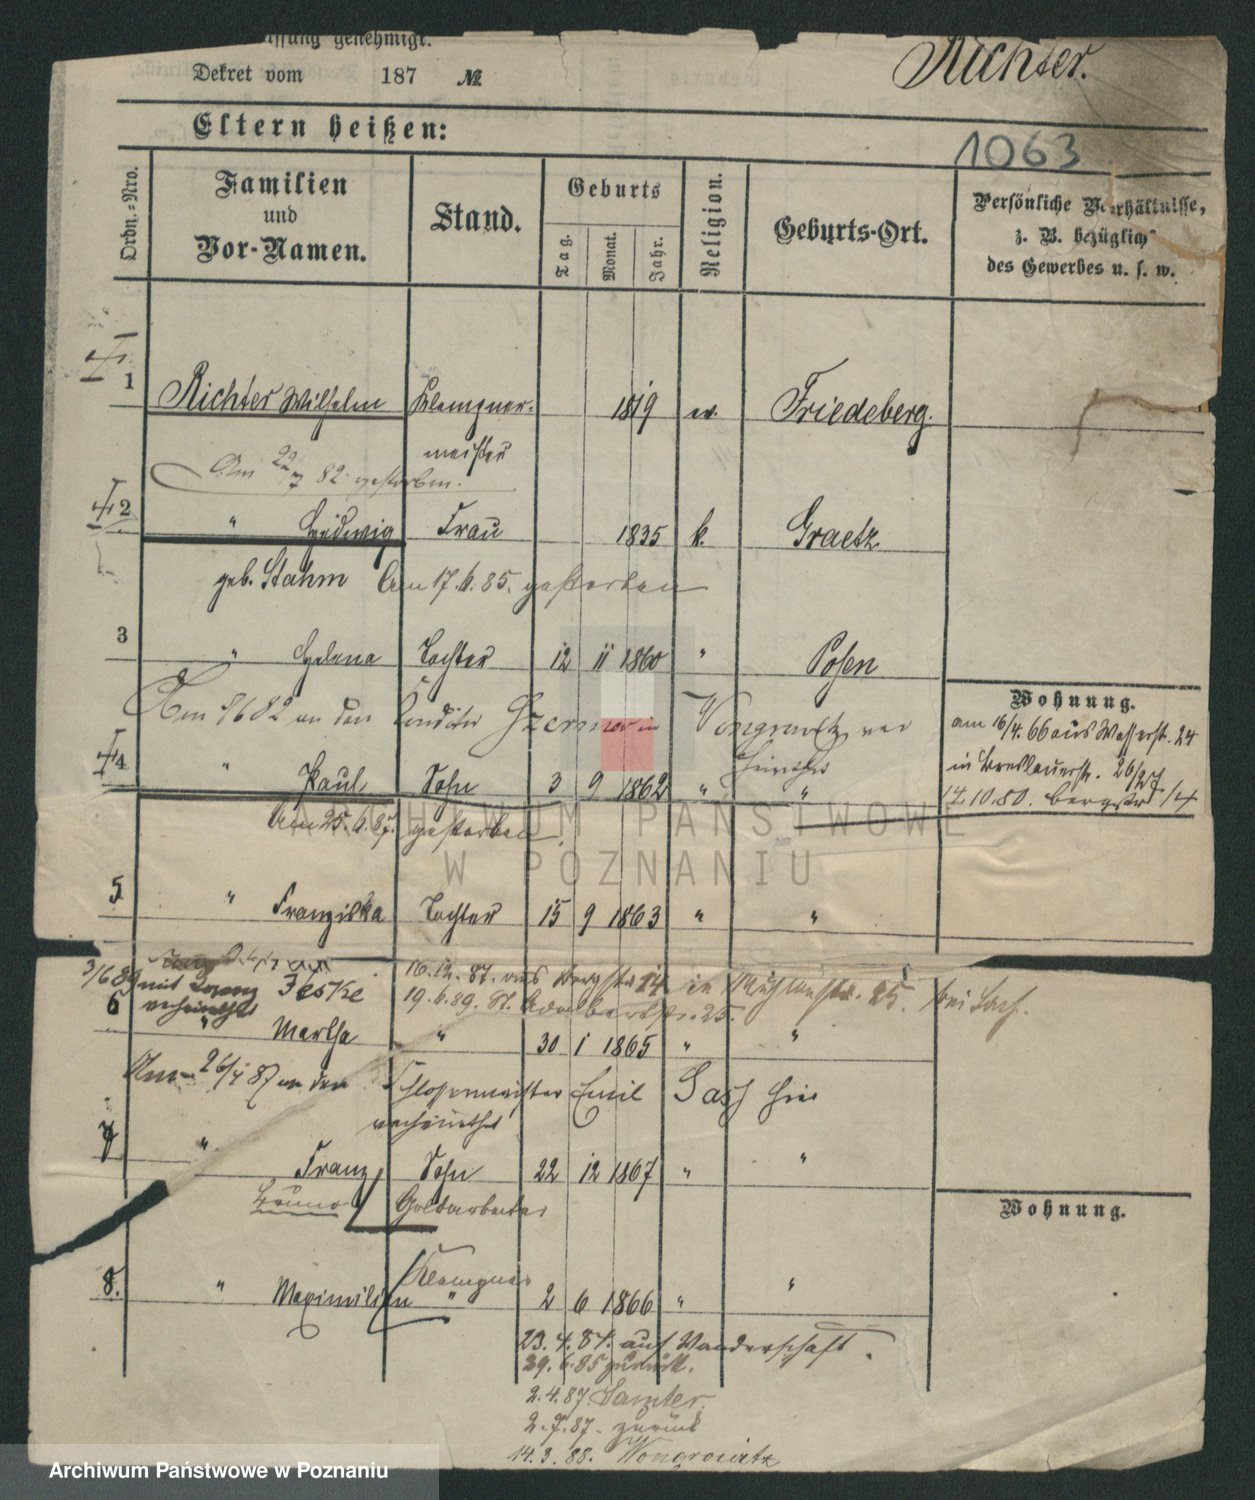 Dekret vom 187 №
Richter.
Eltern heißen:
1063
Ordn.-Nro.
Familien
und
Vor-Namen.
Stand.
Geburts
Tag.
Monat.
Jahr.
Religion.
Geburts-Ort.
Persönliche Verhältnisse,
z. B. bezüglich
des Gewerbes u. s. w.
1 Richter Wilhelm Klempner- 1819 ev. Friedeberg.
meister
Am 22/7 82 gestorben.
2 " Hedwig Frau 1835 k. Graetz
geb. Stahm Am 17.6.85. gestorben
3 " Helena Tochter 12 11 1860 " Posen
Wohnung.
Am 9682 an den Conditor in Wongrowitz ver
heirathet
am 16/4. 66 aus Wasserstr. 24
in Breslauerstr. 26/27
17.10.80. Bergstr. 14
4 " Paul Sohn 3 9 1862 " "
Am 25.6.87. gestorben
ARCHIWUM PAŃSTWOWE
W POZNANIU
5 " Franziska Tochter 15 9 1863 " "
3/6 89 mit Feske
verheirathet
16.12.87. aus Bergstr. 14 in 25. bei Sach.
19.6.89. St. Adalbertstr. 25.
6 " Martha " 30 1 1865 " "
Am 26/4 87 an den Schlossermeister Emil hier
verheirathet
7 " Franz Sohn 22 12 1867 " "
Bruno Goldarbeiter
Wohnung.
Klempner
8. " Maximilian " 2 6 1866 " "
23.4.84. auf Wanderschaft.
29.6.85 zurück.
2.4.87 Samter.
2.7.87. zurück
14.3.88. Wongrowitz
Archiwum Państwowe w Poznaniu